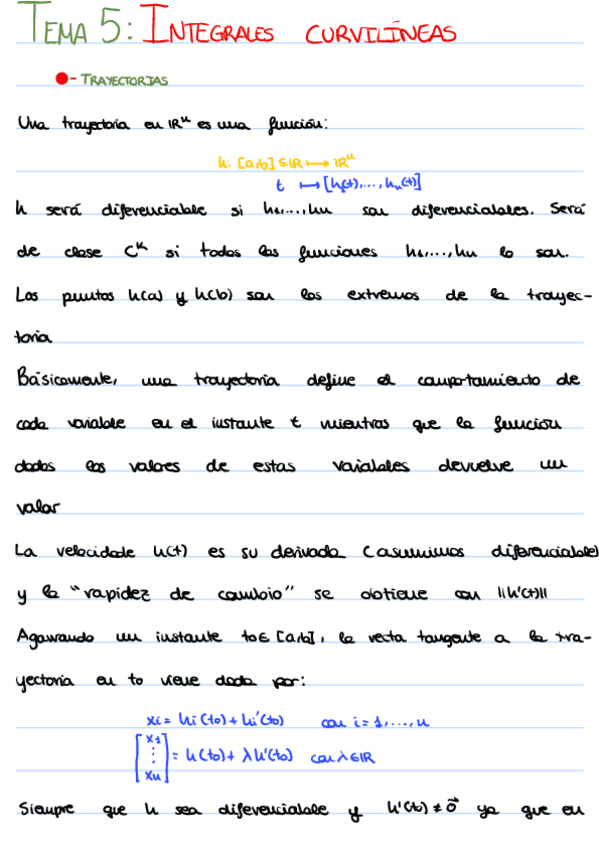 TEMA 5: INTEGRALES CURVILÍNEAS
- TRAYECTORIAS
Una trayectoria en IRⁿ es una función:
h: [a,b] ⊆ IR ⟼ IRⁿ
t ⟼ [h₁(t),...,hₙ(t)]
h será diferenciable si h₁,...,hₙ son diferenciables. Será
de clase Cᴷ si todas las funciones h₁,...,hₙ lo son.
Los puntos h(a) y h(b) son los extremos de la trayec-
toria
Básicamente, una trayectoria define el comportamiento de
cada variable en el instante t mientras que la función
dados los valores de estas variables devuelve un
valor
La velocidade h(t) es su derivada (asumimos diferenciable)
y la "rapidez de cambio" se obtiene con ||h'(t)||
Agarrando un instante t₀ ∈ [a,b], la recta tangente a la tra-
yectoria en t₀ viene dada por:
xᵢ = hᵢ(t₀) + hᵢ'(t₀) con i = 1,...,n
[x₁ ⋮ xₙ] = h(t₀) + λh'(t₀) con λ ∈ IR
Siempre que h sea diferenciable y h'(t₀) ≠ 0⃗ ya que en